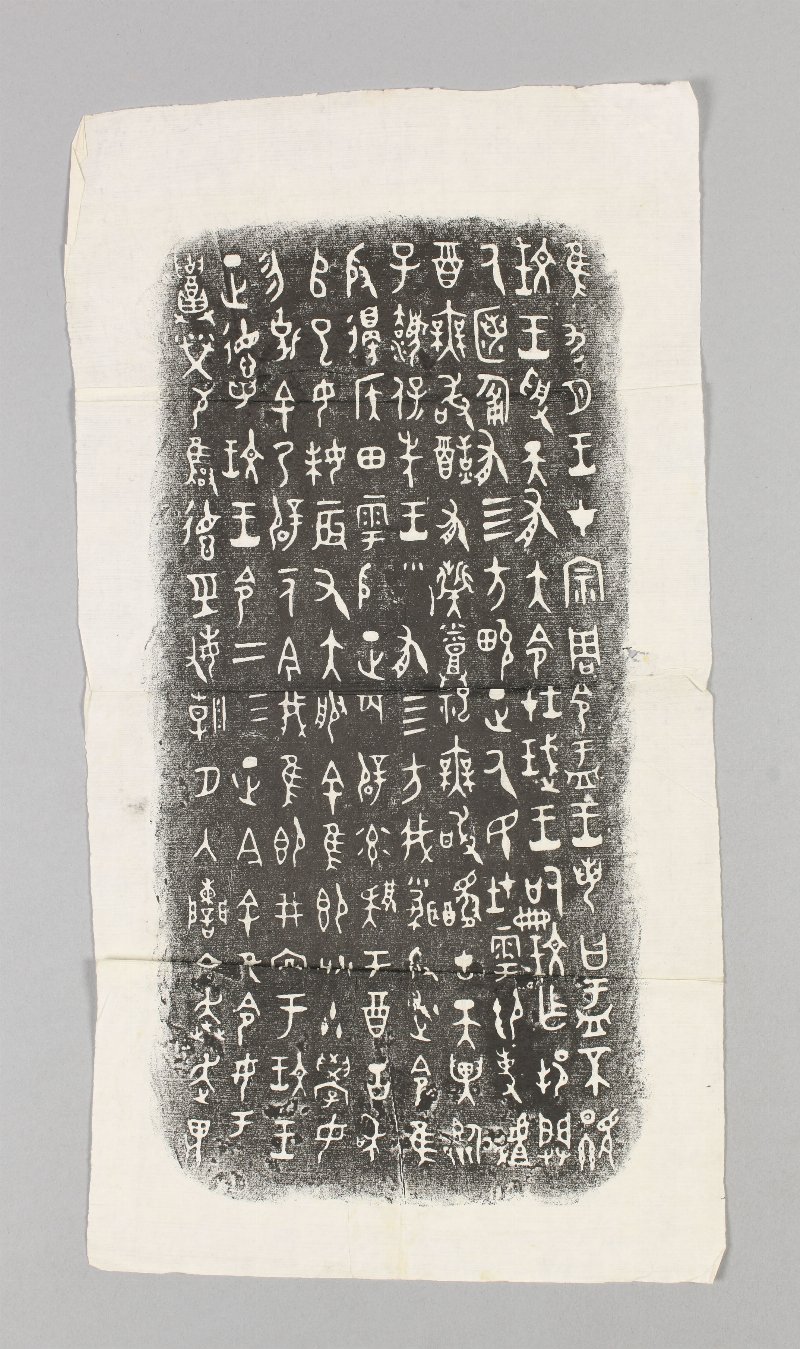 隹九月王才宗周令盂王若曰盂不顯
玟王受天有大令在珷王嗣玟乍邦闢
氒匿匍有四方畯正氒民在雩御事䖒
酉無敢酖有祡蒸祀無敢醻古天異臨
子灋保先王有四方我聞殷述令隹
殷邊侯田雩殷正百辟率肄于酉古喪
𠂤巳女妹辰又大服余隹即朕小學女
勿克余乃辟一人今我隹即井㐭于玟王
正德若玟王令二三正今余隹令女盂
召榮敬雍德巠敏朝夕入讕享奔走畏